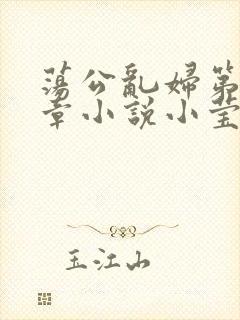 蕩公亂婦第
章小說小莹
玉江山